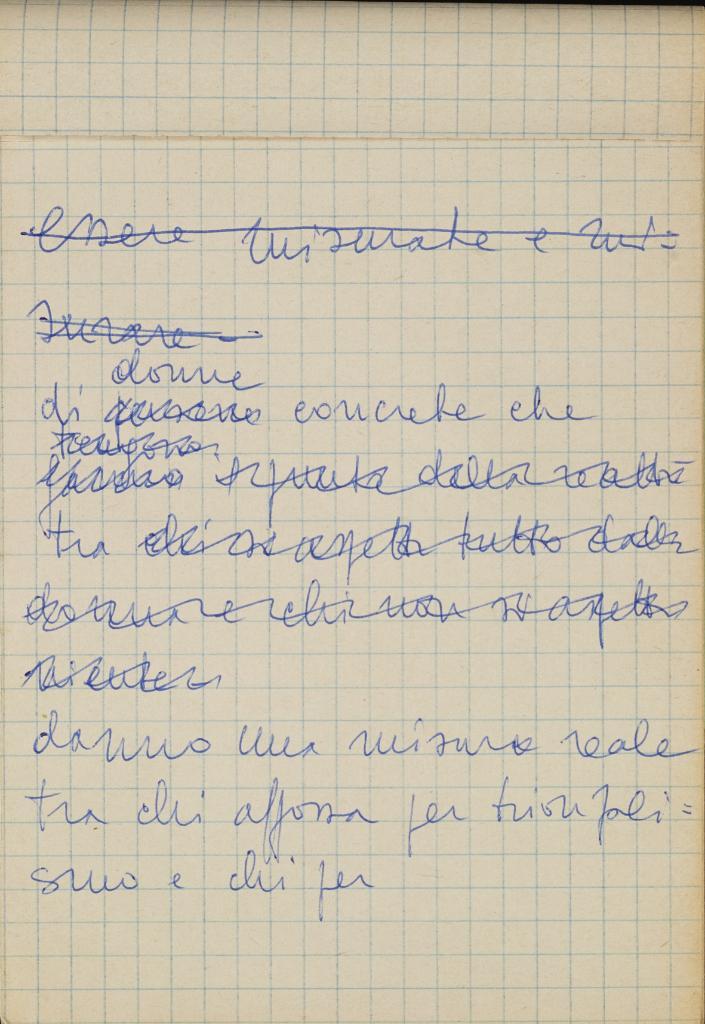 Essere misurate e mi=
surare –
donne
di persone concrete che
fanno tra chi si aspetta tutto dalla
donna e chi non si aspetta
niente
danno una misura reale
tra chi affossa per trionfali=
smo e chi per